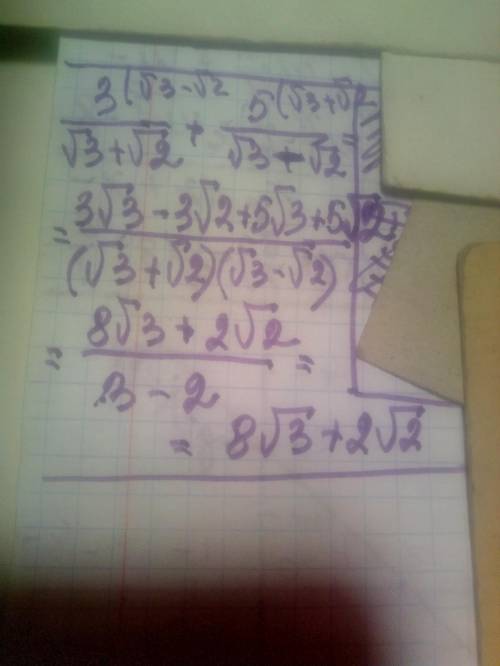 3 (√3 - √2   5 (√3 + √2
√3 + √2 + √3 - √2 =
= 3√3 - 3√2 + 5√3 + 5√2
(√3 + √2)(√3 - √2)
= 8√3 + 2√2 =
3 - 2
= 8√3 + 2√2